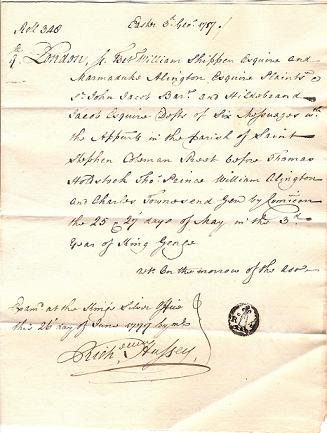 Roll 348 Easter 3d Geo: 1717
London, ss. Bet. William Shippen Esquire and
Marmaduke Alington Esquire Plaints
Sr John Jacob Bart. and Hildebrand
Jacob Esquire Defts of Six Messuages wth
the Appurts in the parish of Saint
Stephen Coleman Street before Thomas
Hodstock Tho: Prince William Alington
and Charles Townsend Gen by
the 25 27 days of May in the 3d
Year of King George
on the morrow of the
Exam'd at the Kings Silver Office
this 26 day of June 1717 by me
Rich: Hussey